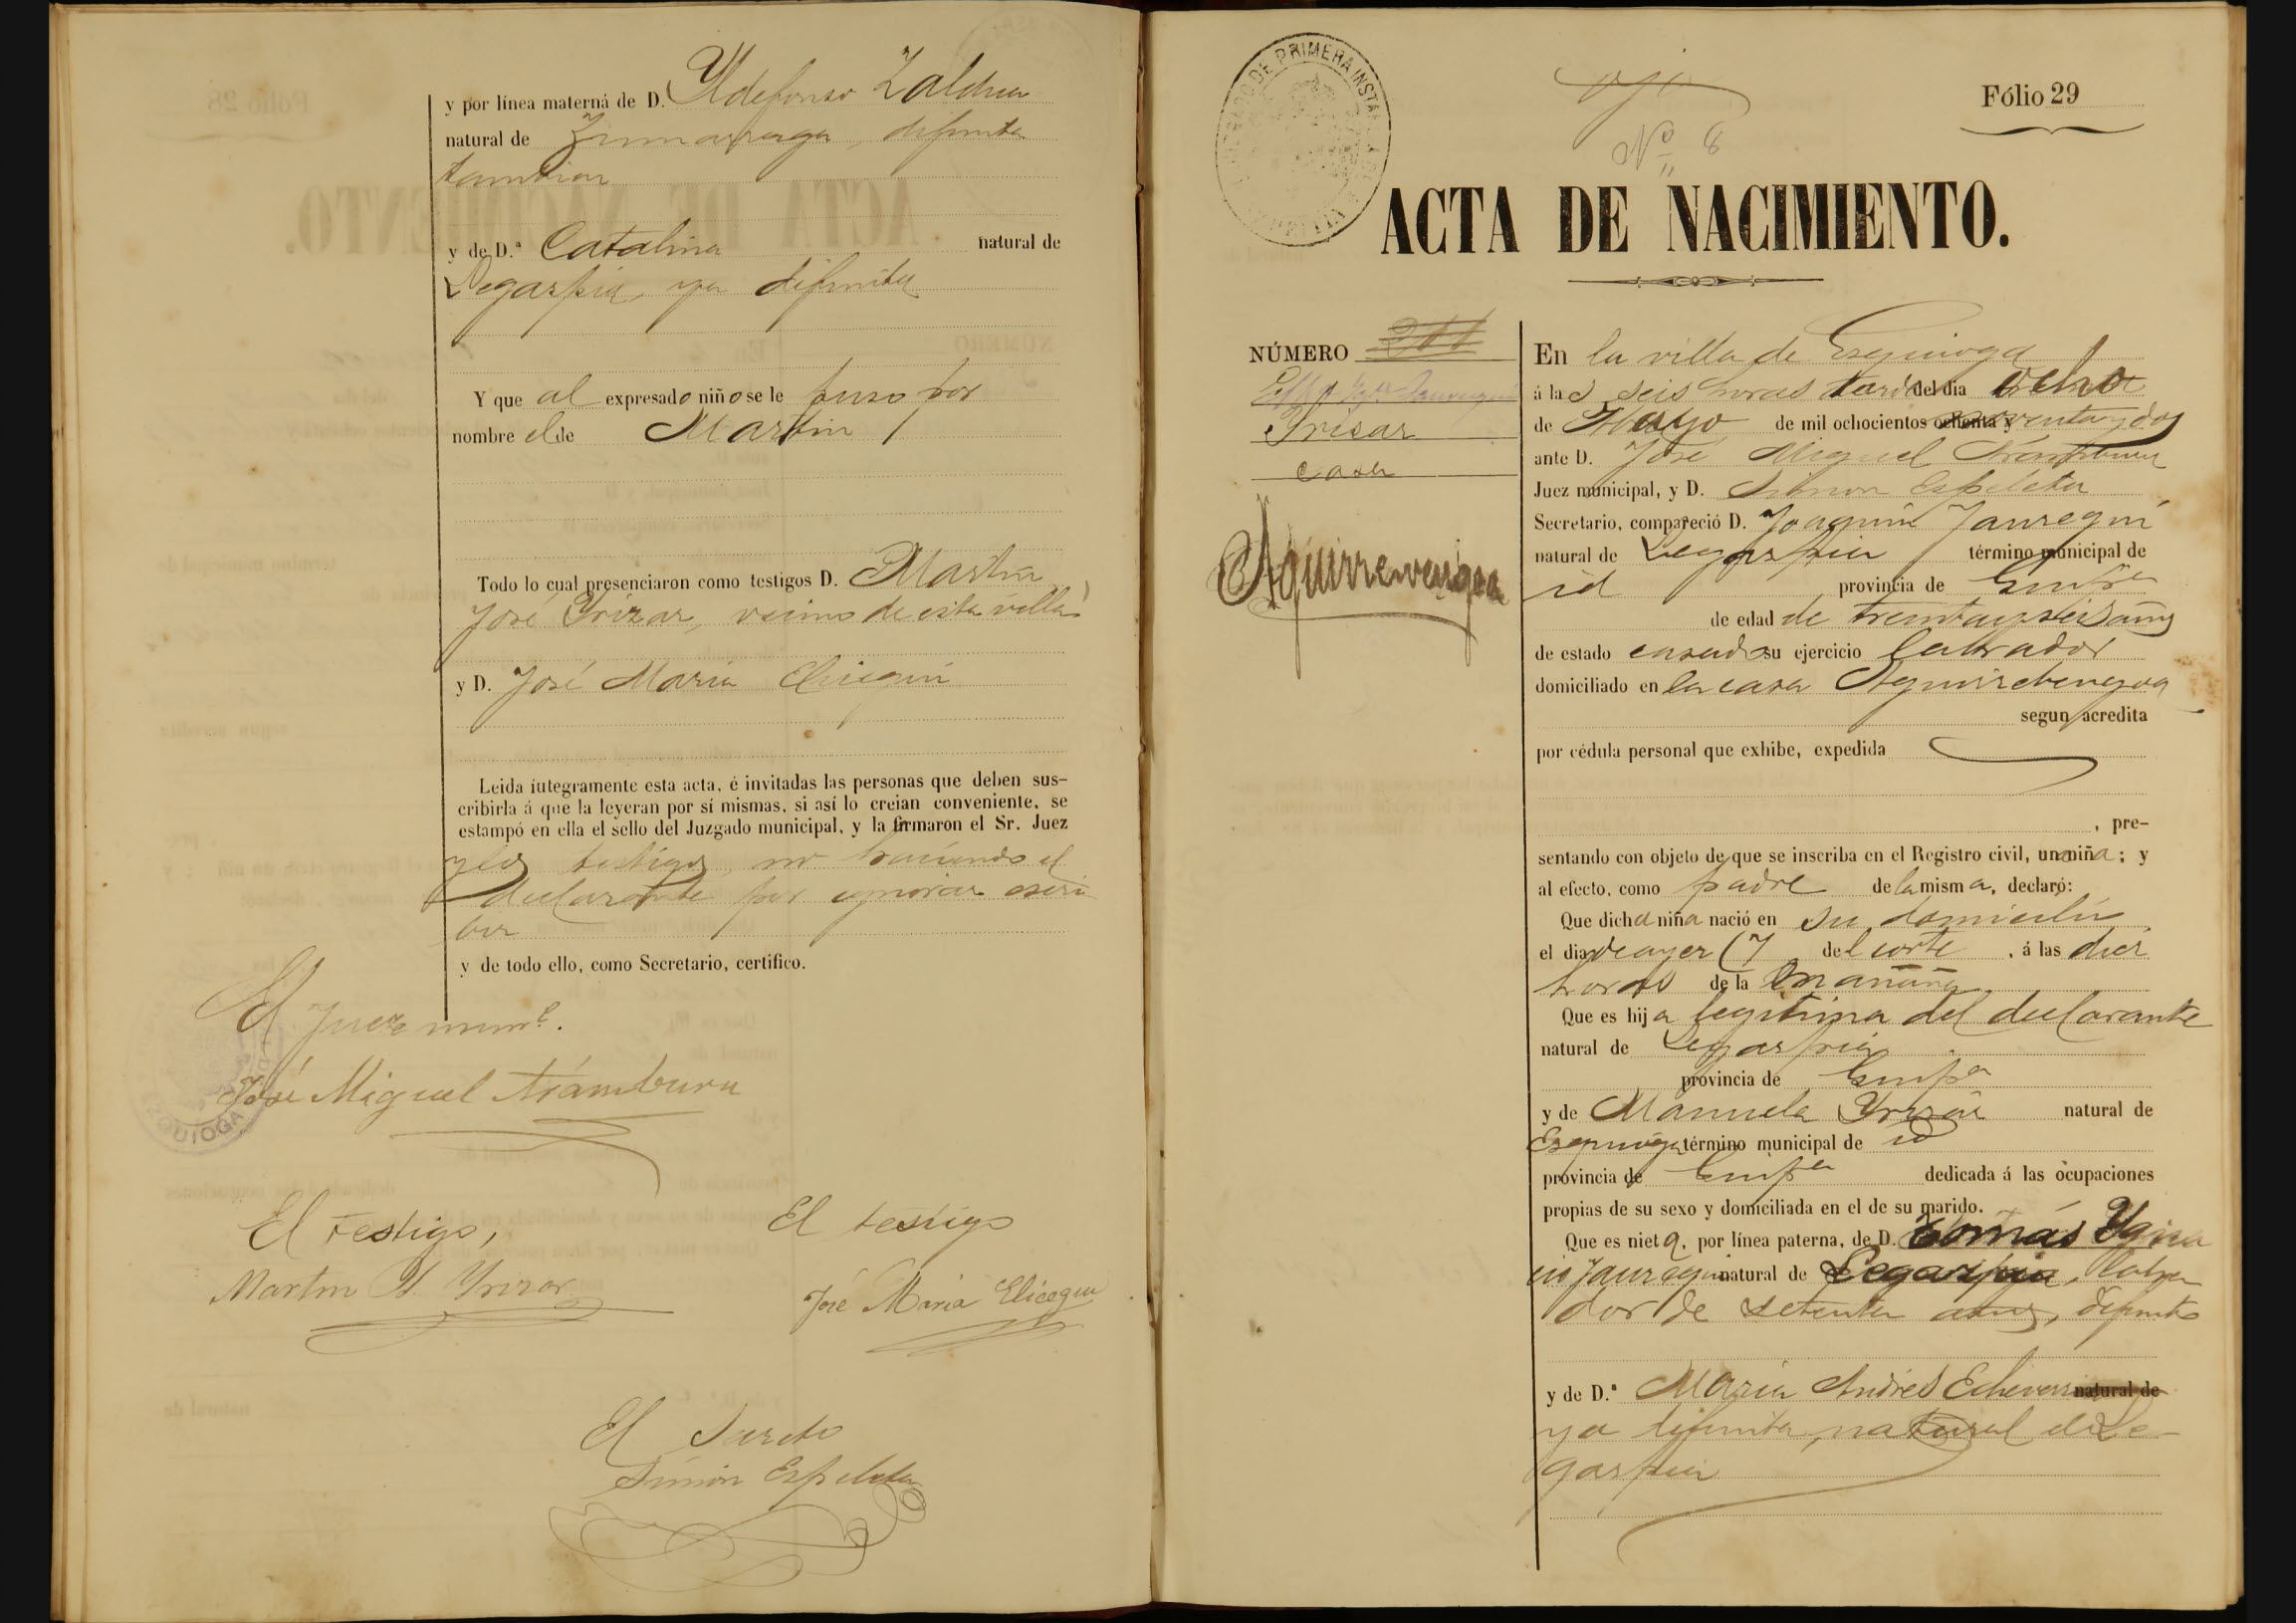 y por línea materna de D. Yldefonso Zaldua
natural de Zumarraga, difunto
tambien
y de D.ª Catalina natural de
Legazpia, ya difunta
Y que al expresado niño se le puso por
nombre el de Martin
Todo lo cual presenciaron como testigos D. Martin
José Yrizar, vecino de esta villa
y D. José Maria Elicegui
Leida íntegramente esta acta, é invitadas las personas que deben sus-
cribirla á que la leyeran por sí mismas, si así lo creian conveniente, se
estampó en ella el sello del Juzgado municipal, y la firmaron el Sr. Juez
y los testigos, no haciendo el
declarante por ignorar escri
bir
y de todo ello, como Secretario, certifico.
El Juez munl.
José Miguel Arámburu
El testigo,
Martin J. Yrizar
El testigo
José Maria Elicegui
El Sureto
Simon Espeleta
JUZGADO DE PRIMERA INSTA
Fólio 29
Nº 8
ACTA DE NACIMIENTO.
NÚMERO
Jauregui
Yrisar
casa
Aguirrevengoa
En la villa de Esquioga
á las seis horas tarde del dia ocho
de Mayo de mil ochocientos ochenta y noventa y dos
ante D. José Miguel Arámburu
Juez municipal, y D. Simon Espeleta
Secretario, compareció D. Joaquin Jauregui
natural de Legazpia término municipal de
id provincia de Guipª
de edad de treinta y seis años
de estado casado su ejercicio labrador
domiciliado en la casa Aguirrebengoa
segun acredita
por cédula personal que exhibe, expedida
, pre-
sentando con objeto de que se inscriba en el Registro civil, una niña; y
al efecto, como padre de la misma, declaró:
Que dicha niña nació en su domicilio
el dia de ayer (7 del corte , á las diez
horas de la mañana
Que es hija legitima del declarante
natural de Legazpia
provincia de Guipª
y de Manuela Yrizar natural de
Esquioga término municipal de id
provincia de Guipª dedicada á las ocupaciones
propias de su sexo y domiciliada en el de su marido.
Que es nieta, por línea paterna, de D. Tomás Ygna
cio Jauregui natural de Legazpia, labra
dor de setenta años, difunto
y de D.ª Maria Andrés Echeverri natural de
ya difunta, natural de Le-
gazpia